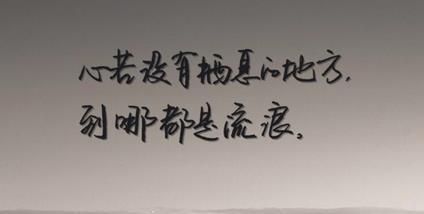 心若没有栖息的地方,
到哪都是流浪。